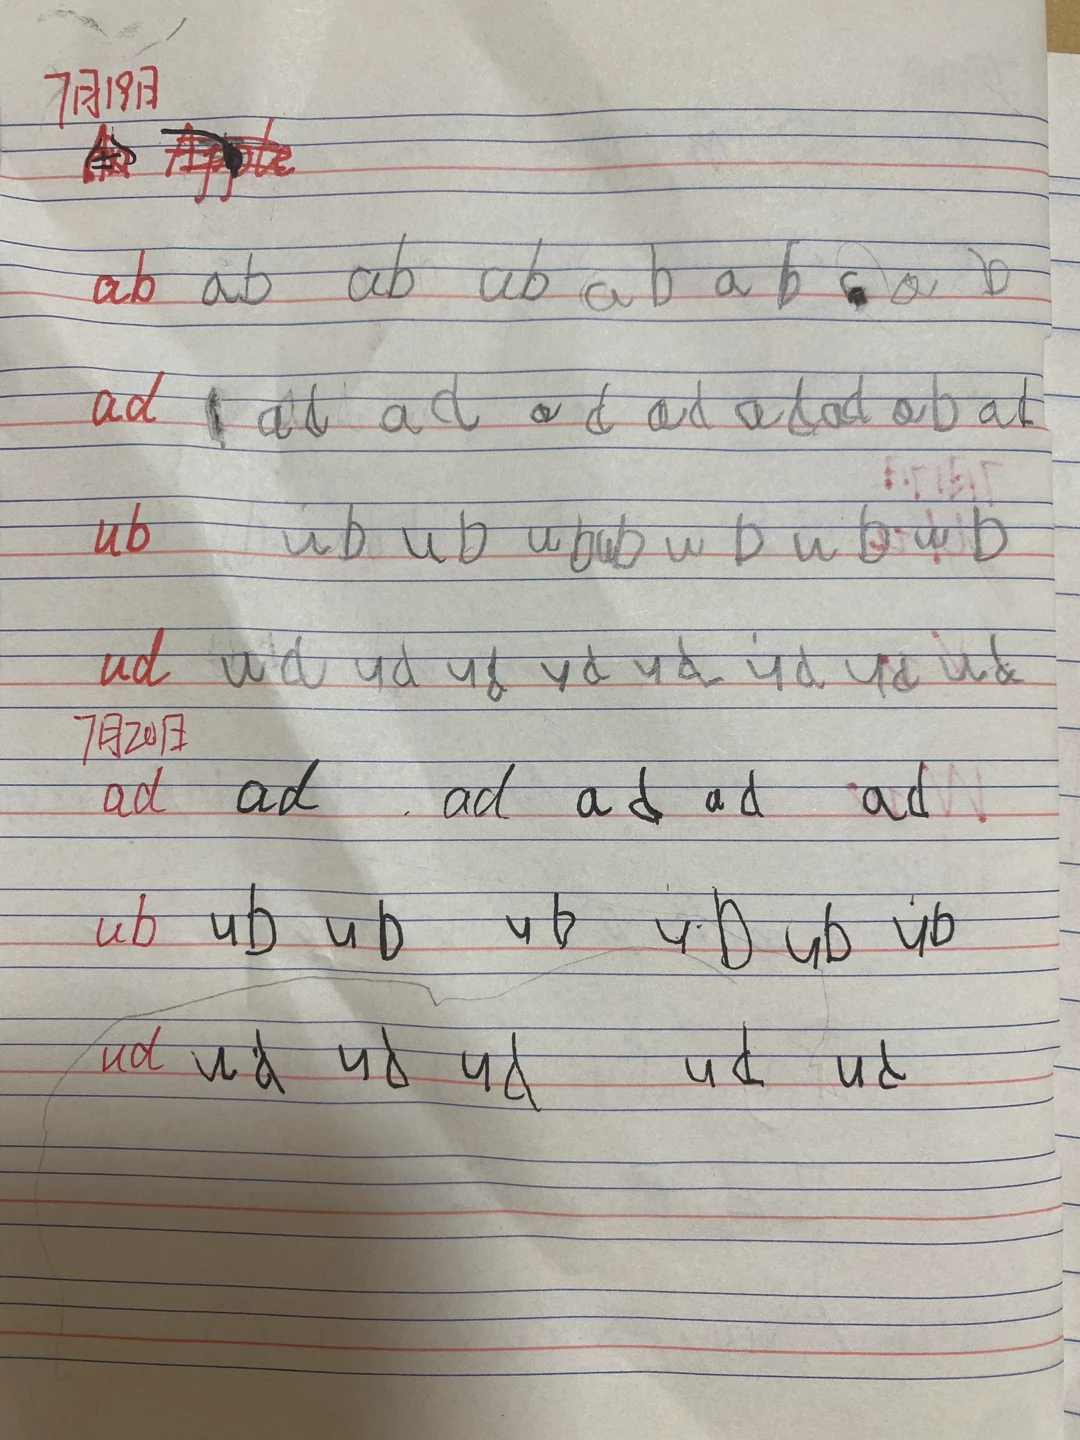 7月19日
Apple
ab ab ab ab ab ab a b
ad ad ad ad ad ad ad ab ad
ub ub ub ub ub ub ub ub
ud ud ud ud ud ud ud ud ud
7月20日
ad ad ad ad ad ad
ub ub ub ub ub ub ub
ud ud ud ud ud ud